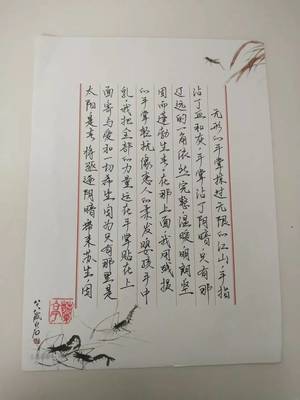 无形的手掌掠过无限的江山,手指
沾了血和灰,手掌沾了阴暗,只有那
辽远的一角依然完整,温暖,明朗,坚
固而蓬勃生春。在那上面,我用残损
的手掌轻抚,像恋人的柔发,婴孩手中
乳。我把全部的力量运在手掌贴在上
面,寄与爱和一切希望,因为只有那里是
太阳,是春,将驱逐阴暗,带来苏生,因
白石